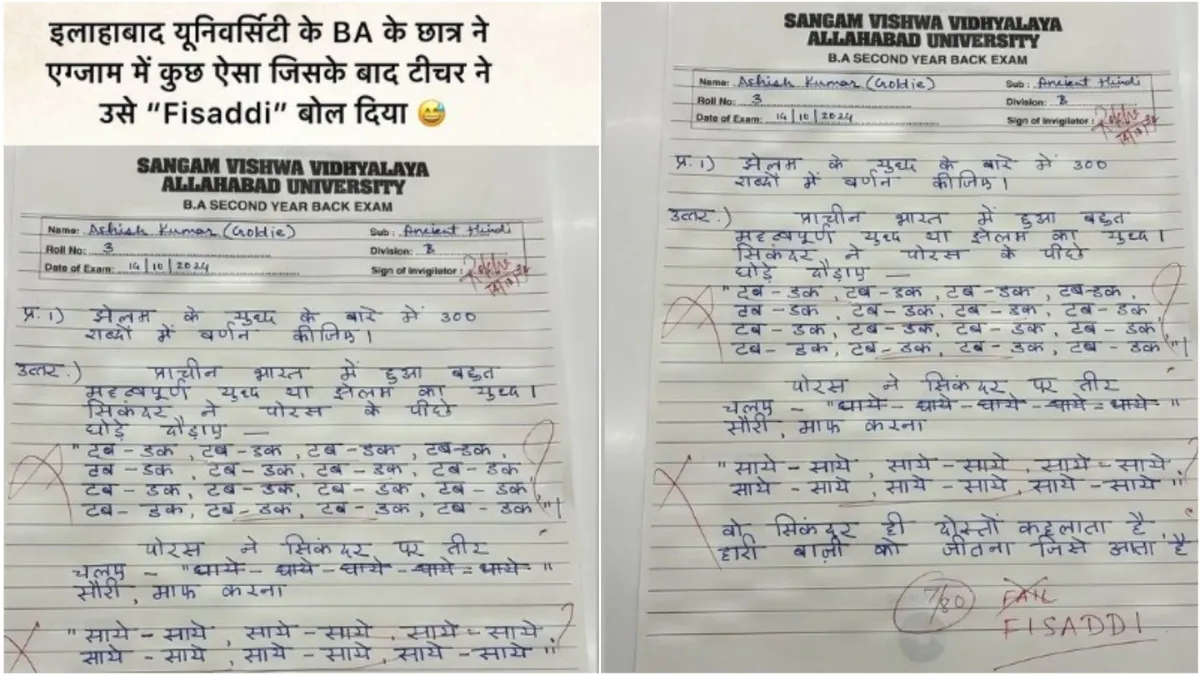 इलाहाबाद यूनिवर्सिटी के BA के छात्र ने
एग्जाम में कुछ ऐसा जिसके बाद टीचर ने
उसे “Fisaddi” बोल दिया 😅
SANGAM VISHWA VIDHYALAYA
ALLAHABAD UNIVERSITY
B.A SECOND YEAR BACK EXAM
Name: Ashish Kumar (Goldie) Sub : Ancient Hindi
Roll No: 3 Division: B
Date of Exam: 14|10|2024 Sign of Invigilator :
प्र. 1) झेलम के युध्ध के बारे में 300
शब्दों में वर्णन कीजिए।
उत्तर.) प्राचीन भारत में हुआ बहुत
महत्वपूर्ण युध्ध था झेलम का युध्ध।
सिकंदर ने पोरस के पीछे
घोड़े दौड़ाए —
" टब - डक , टब - डक , टब - डक , टब-डक,
टब - डक, टब - डक, टब - डक, टब - डक
टब - डक, टब - डक, टब - डक, टब - डक,
टब - डक, टब - डक, टब - डक, टब - डक "|
पोरस ने सिकंदर पर तीर
चलाए - "धाये - धाये - धाये - धाये - धाये "
सौरी, माफ करना
" साये - साये , साये - साये , साये - साये ,
साये - साये , साये - साये , साये - साये "
SANGAM VISHWA VIDHYALAYA
ALLAHABAD UNIVERSITY
B.A SECOND YEAR BACK EXAM
Name: Ashish Kumar (Goldie) Sub : Ancient Hindi
Roll No: 3 Division: B
Date of Exam: 14|10|2024 Sign of Invigilator :
प्र. 1) झेलम के युध्ध के बारे में 300
शब्दों में वर्णन कीजिए।
उत्तर.) प्राचीन भारत में हुआ बहुत
महत्वपूर्ण युध्ध था झेलम का युध्ध।
सिकंदर ने पोरस के पीछे
घोड़े दौड़ाए —
" टब - डक , टब - डक , टब - डक , टब-डक,
टब - डक, टब - डक, टब - डक, टब - डक
टब - डक, टब - डक, टब - डक, टब - डक,
टब - डक, टब - डक, टब - डक, टब - डक "|
पोरस ने सिकंदर पर तीर
चलाए - "धाये - धाये - धाये - धाये - धाये "
सौरी, माफ करना
" साये - साये , साये - साये , साये - साये ,
साये - साये , साये - साये , साये - साये "
वो सिकंदर ही दोस्तों कहलाता है,
हारी बाज़ी को जीतना जिसे आता है
7/80 FAIL
FISADDI